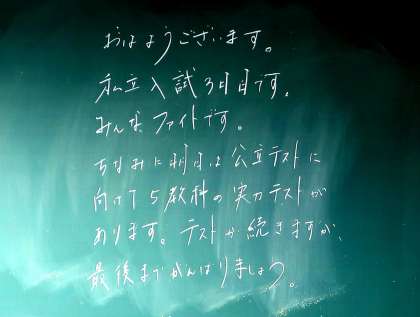 おはようございます。
私立入試3日目です。
みんなファイトです。
ちなみに明日は公立テストに
向けて5教科の実力テストが
あります。テストが続きますが、
最後までがんばりましょう。